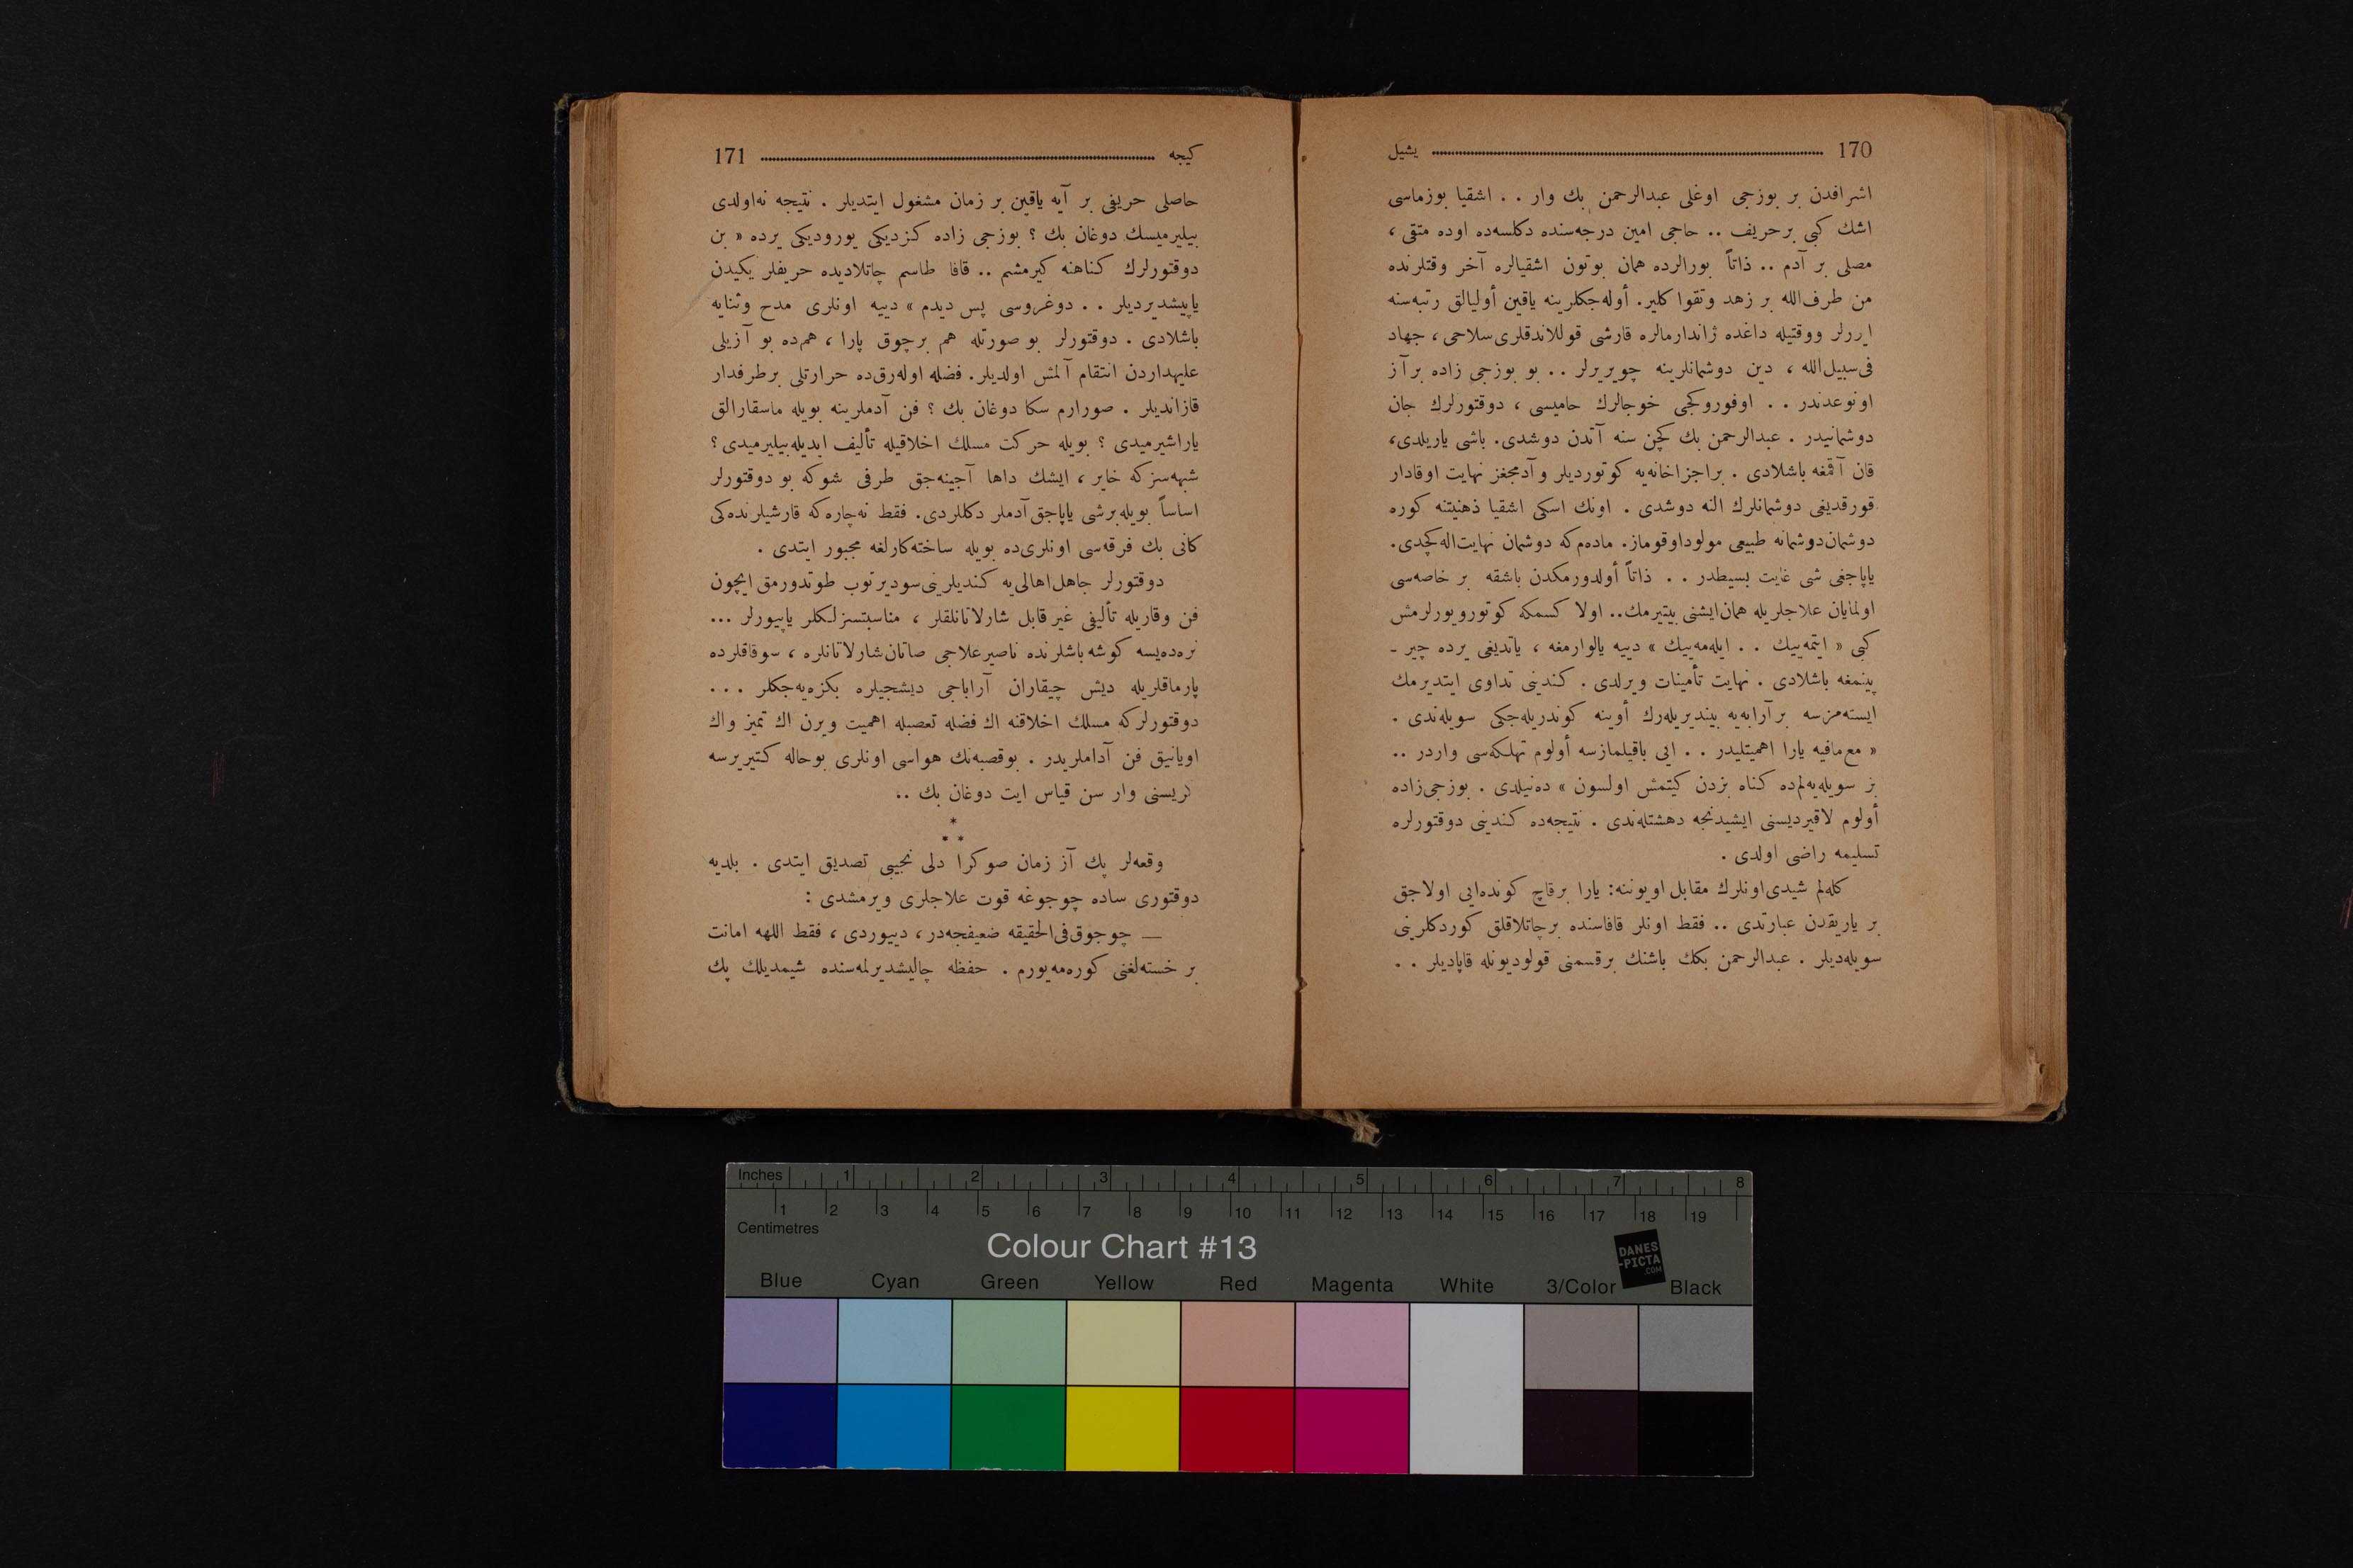 170 يشيل
اشرافدن بر بوزجى اوغلى عبدالرحمن بك وار . . اشقيا بوزماسى
اشك كبى برحريف .. حاجى امين درجه‌سنده دكلسه‌ده اوده متقى ،
مصلى بر آدم .. ذاتاً بورالرده همان بوتون اشقيالره آخر وقتلرنده
من طرف‌الله بر زهد وتقوا كلير. أوله‌جكلرينه ياقين أوليالق رتبه‌سنه
ايررلر ووقتيله داغده ژاندارمالره قارشى قوللاندقلرى‌سلاحى ، جهاد
فى‌سبيل‌الله ، دين دوشمانلرينه چويريرلر .. بو بوزجى زاده برآز
اونوعدندر . . اوفوروكجى خوجالرك حاميسى ، دوقتورلرك جان
دوشمانيدر . عبدالرحمن بك كچن سنه آتدن دوشدى. باشى ياريلدى،
قان آقمغه باشلادى . براجزاخانه‌يه كوتورديلر وآدمجغز نهايت اوقادار
قورقديغى دوشمانلرك النه دوشدى . اونك اسكى اشقيا ذهنيتنه كوره
دوشمان‌دوشمانه طبيعى مولوداوقوماز. مادم‌كه دوشمان نهايت‌اله‌كچدى.
ياپاجغى شى غايت بسيطدر . . ذاتاً أولدورمكدن باشقه بر خاصه‌سى
اولمايان علاجلريله همان‌ايشنى بيتيرمك.. اولا كسمكه كوتوروييورلرمش
كبى « ايتمه‌ييك . . ايله‌مه‌ييك » دييه يالوارمغه ، ياتديغى يرده چير ـ
پينمغه باشلادى . نهايت تأمينات ويرلدى . كندينى تداوى ايتديرمك
ايسته‌مزسه برآرابه‌يه بينديريله‌رك أوينه كوندريله‌جكى سويله‌ندى .
« مع‌مافيه يارا اهميتليدر . . ايى باقيلمازسه أولوم تهلكه‌سى واردر ..
بز سويله‌يه‌لم‌ده كناه بزدن كيتمش اولسون » ده‌نيلدى . بوزجى‌زاده
أولوم لاقيرديسنى ايشيدنجه دهشتله‌ندى . نتيجه‌ده كندينى دوقتورلره
تسليمه راضى اولدى .
كله‌لم شيدى‌اونلرك مقابل اويوننه: يارا برقاچ كونده‌ايى اولاجق
بر ياريقدن عبارتدى .. فقط اونلر قافاسنده برچاتلاقلق كوردكلرينى
سويله‌ديلر . عبدالرحمن بكك باشنك برقسمنى قولوديونله قاپاديلر . .
كيجه 171
حاصلى حريفى بر آيه ياقين بر زمان مشغول ايتديلر . نتيجه نه‌اولدى
بيليرميسك دوغان بك ؟ بوزجى زاده كزديكى يوروديكى يرده « بن
دوقتورلرك كناهنه كيرمشم .. قافا طاسم چاتلاديده حريفلر يكيدن
ياپيشديرديلر . . دوغروسى پس ديدم » دييه اونلرى مدح وثنايه
باشلادى . دوقتورلر بو صورتله هم برچوق پارا ، هم‌ده بو آزيلى
عليهداردن انتقام آلمش اولديلر. فضله اوله‌رق‌ده حرارتلى برطرفدار
قازانديلر . صورارم سكا دوغان بك ؟ فن آدملرينه بويله ماسقارالق
ياراشيرميدى ؟ بويله حركت مسلك اخلاقيله تأليف ايديله‌بيليرميدى ؟
شبهه‌سزكه خاير ، ايشك داها آجينه‌جق طرفى شوكه بو دوقتورلر
اساساً بويله‌برشى ياپاجق‌آدملر دكللردى. فقط نه‌چاره‌كه قارشيلرنده‌كى
كانى بك فرقه‌سى اونلرى‌ده بويله ساخته‌كارلغه مجبور ايتدى .
دوقتورلر جاهل‌اهالى‌يه كنديلرينى‌سوديرتوب طوتدورمق‌ايچون
فن وقاريله تأليفى غير قابل شارلاتانلقلر ، مناسبتسزلكلر ياپيورلر ...
نره‌ده‌يسه كوشه‌باشلرنده ناصيرعلاجى صاتان‌شارلاتانلره ، سوقاقلرده
پارماقلريله ديش چيقاران آراباجى ديشجيلره بكزه‌يه‌جكلر ...
دوقتورلركه مسلك اخلاقنه اك فضله تعصبله اهميت ويرن اك تميز واك
اويانيق فن آداملريدر . بوقصبه‌نك هواسى اونلرى بوحاله كتيريرسه
كريسنى وار سن قياس ايت دوغان بك ..
*
* *
وقعه‌لر پك آز زمان صوكرا دلى نجيبى تصديق ايتدى . بلديه
دوقتورى ساده چوجوغه قوت علاجلرى ويرمشدى :
— چوجوق‌فى‌الحقيقه ضعيفجه‌در، دييوردى ، فقط اللهه امانت
بر خسته‌لغنى كوره‌مه‌يورم . حفظه چاليشديرلمه‌سنده شيمديلك پك
Inches 1 2 3 4 5 6 7 8
1 2 3 4 5 6 7 8 9 10 11 12 13 14 15 16 17 18 19
Centimetres
Colour Chart #13
DANES
-PICTA
.COM
Blue Cyan Green Yellow Red Magenta White 3/Color Black